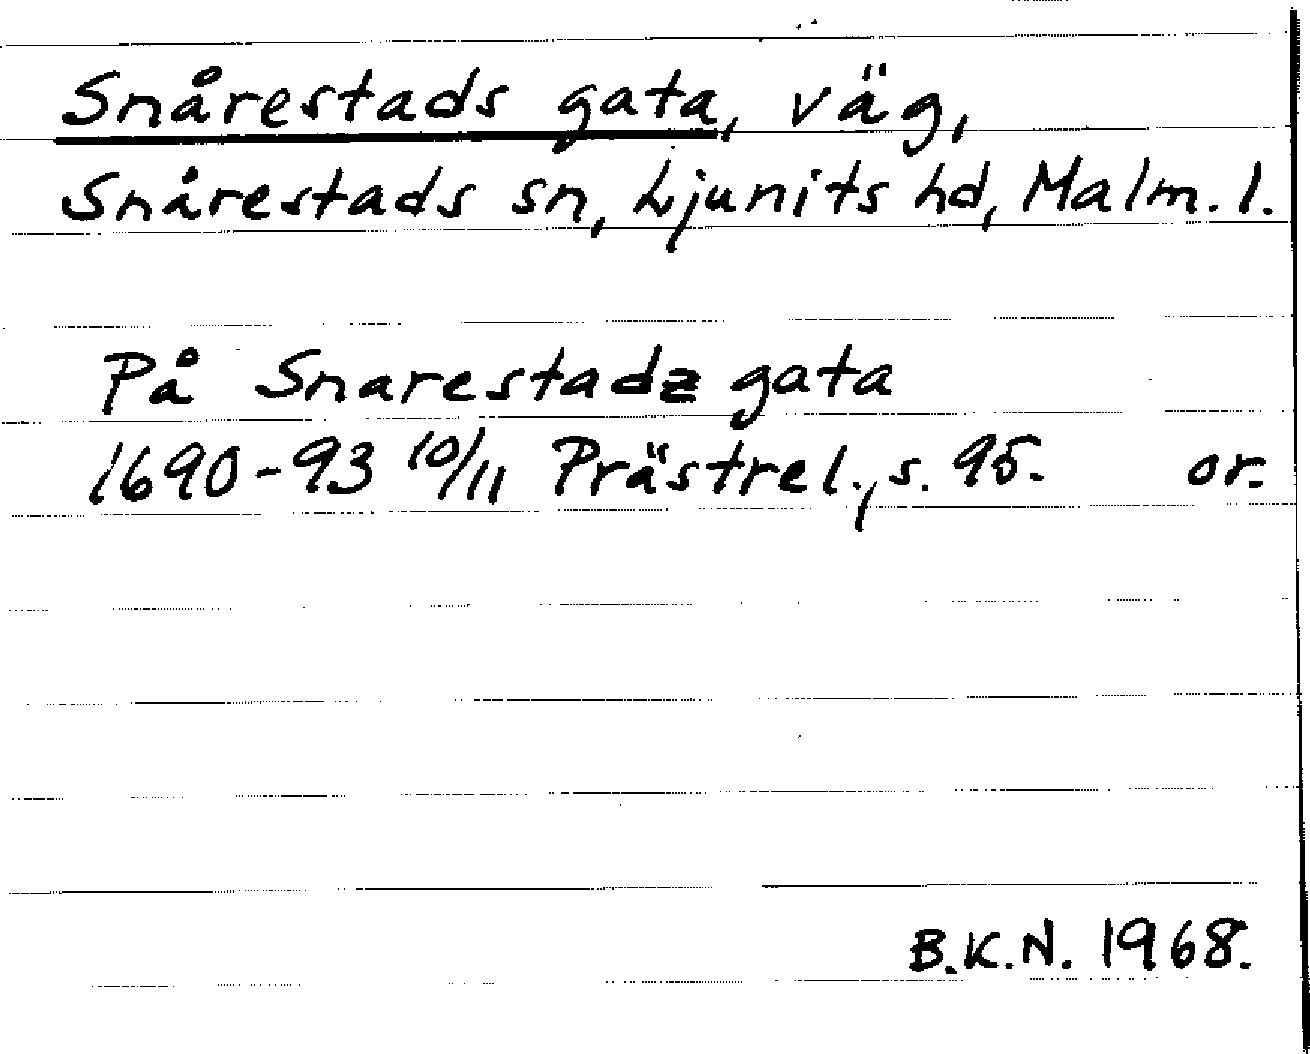 Snårestads gata, väg,
Snårestads sn, Ljunits hd, Malm. l.
På Snarestadz gata
1690-93 10/11 Prästrel., s. 95. or.
B.K.N. 1968.